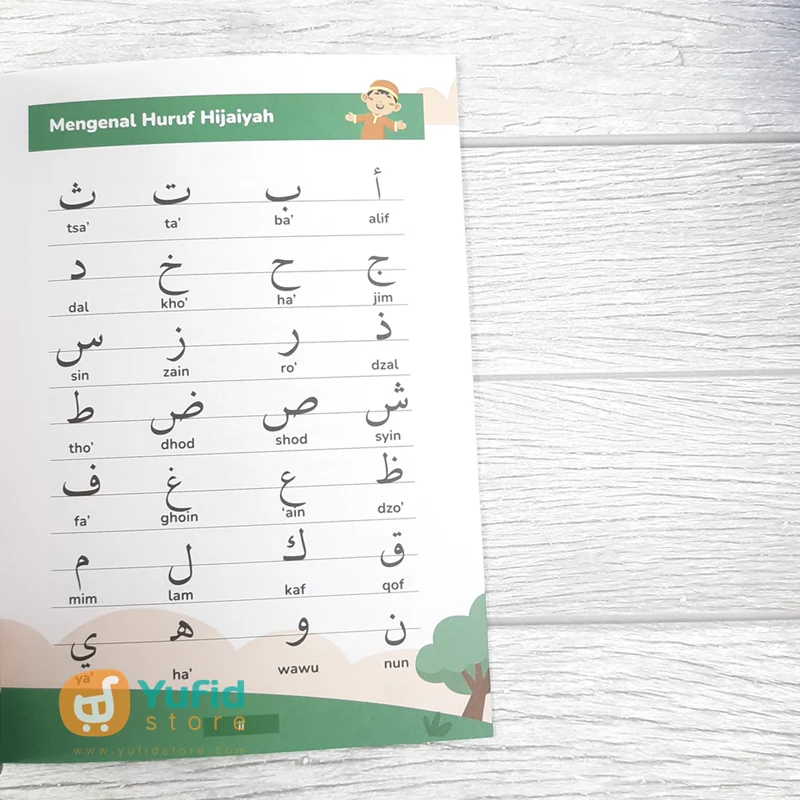 Mengenal Huruf Hijaiyah
أ ب ت ث
tsa' ta' ba' alif
ج ح خ د
dal kho' ha' jim
ذ ر ز س
sin zain ro' dzal
ش ص ض ط
tho' dhod shod syin
ظ ع غ ف
fa' ghoin 'ain dzo'
ق ك ل م
mim lam kaf qof
ن و ه ي
ya' ha' wawu nun
Yufid
store
ii
www.yufidstore.com